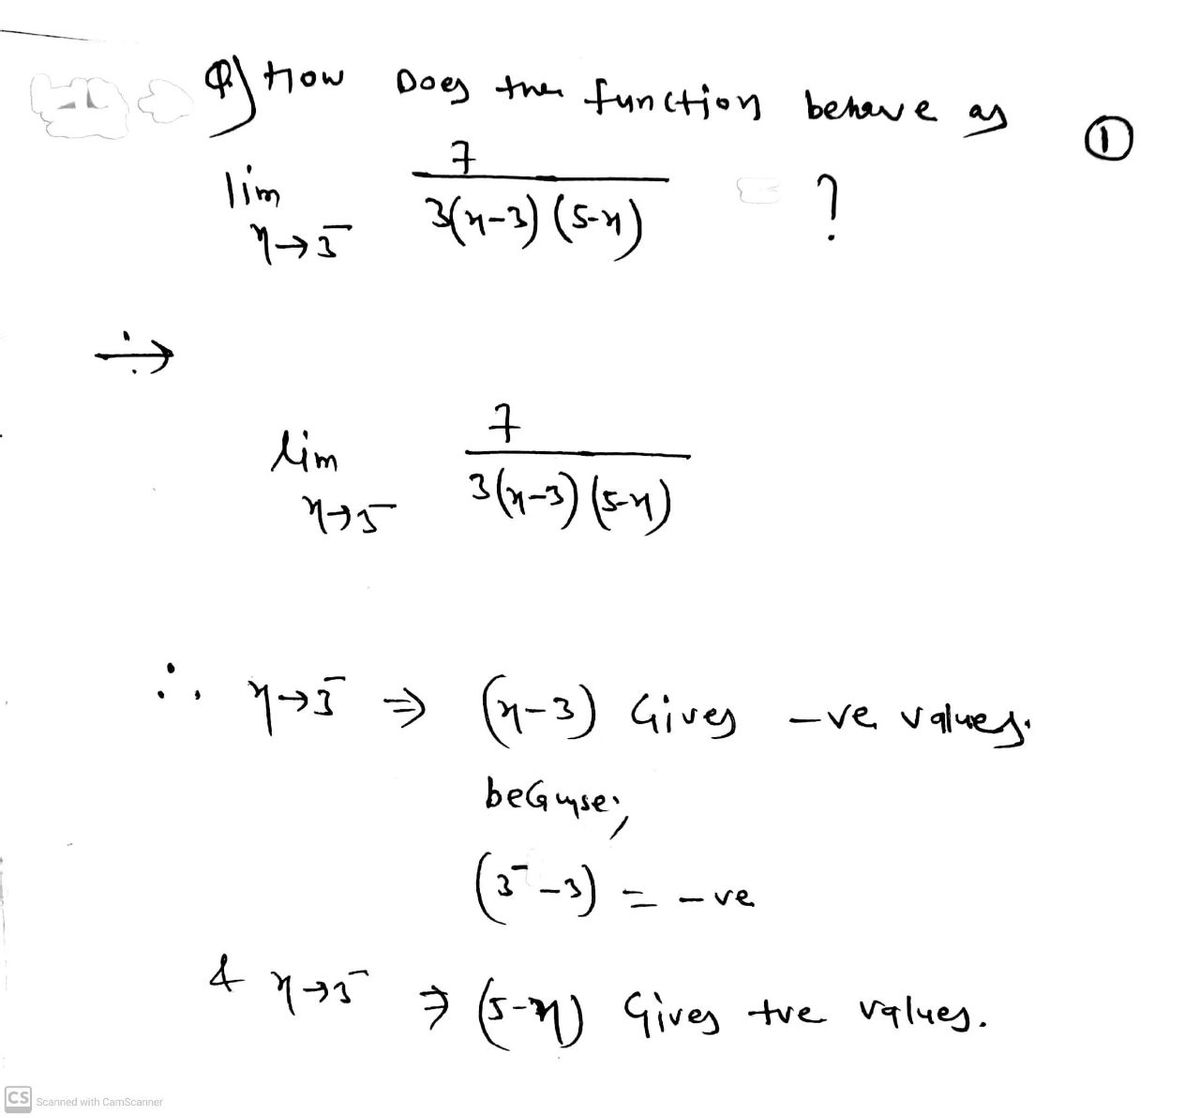 Q) How Does the function behave as ①
lim x→3⁻ 7 / 3(x-3)(5-x) ?
lim x→3⁻ 7 / 3(x-3)(5-x)
∴ x→3⁻ ⇒ (x-3) Gives -ve values.
because;
(3⁻-3) = -ve
& x→3⁻ ⇒ (5-x) Gives +ve values.
CS Scanned with CamScanner